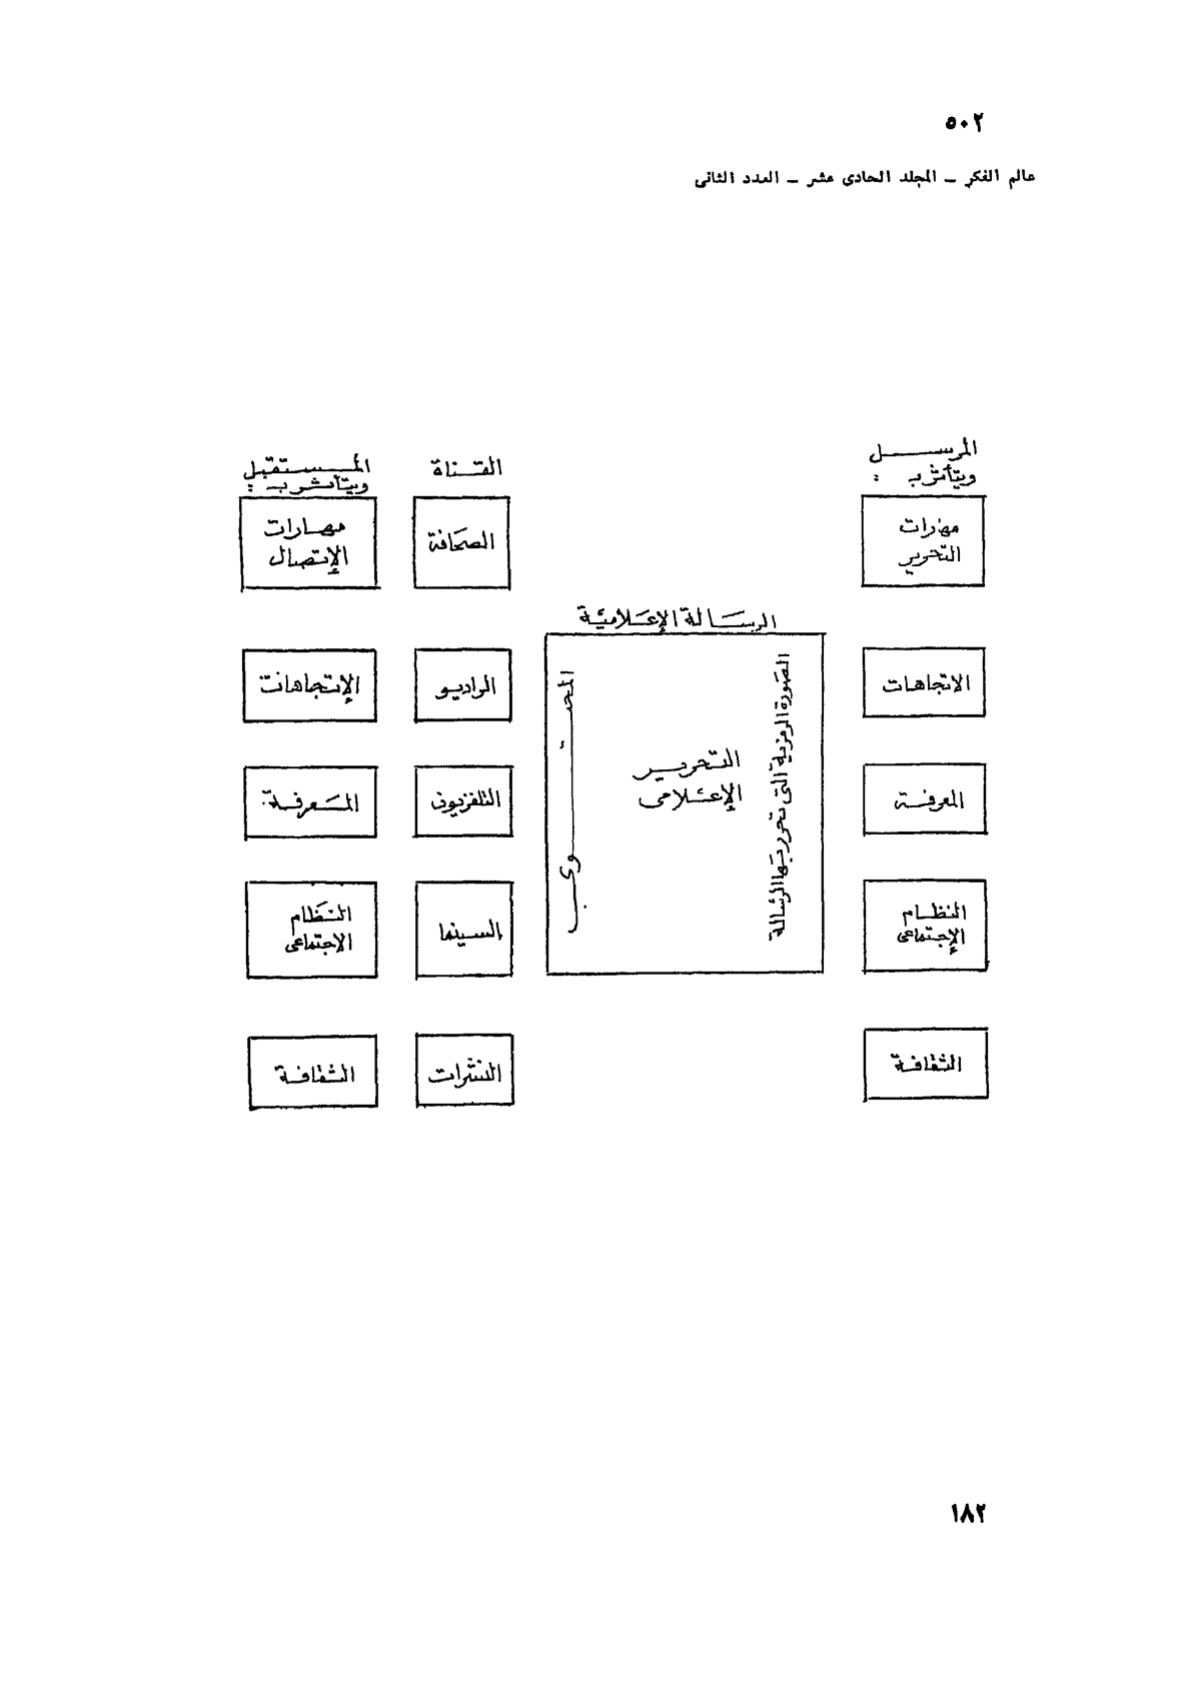 ٥٠٢
عالم الفكر ــ المجلد الحادى عشر ــ العدد الثانى
المرسل
ويتأثر بـ :
مهارات
التحرير
الاتجاهات
المعرفة
النظام
الإجتماعى
الثقافة
الرسالة الإعلامية
الصورة الرمزية التى تحرر بها الرسالة
التحرير
الإعلامى
القناة
الصحافة
الراديو
التلفزيون
السينما
النشرات
المستقبل
ويتأثر بـ :
مهارات
الإتصال
الإتجاهات
المعرفة
النظام
الاجتماعى
الثقافة
١٨٢